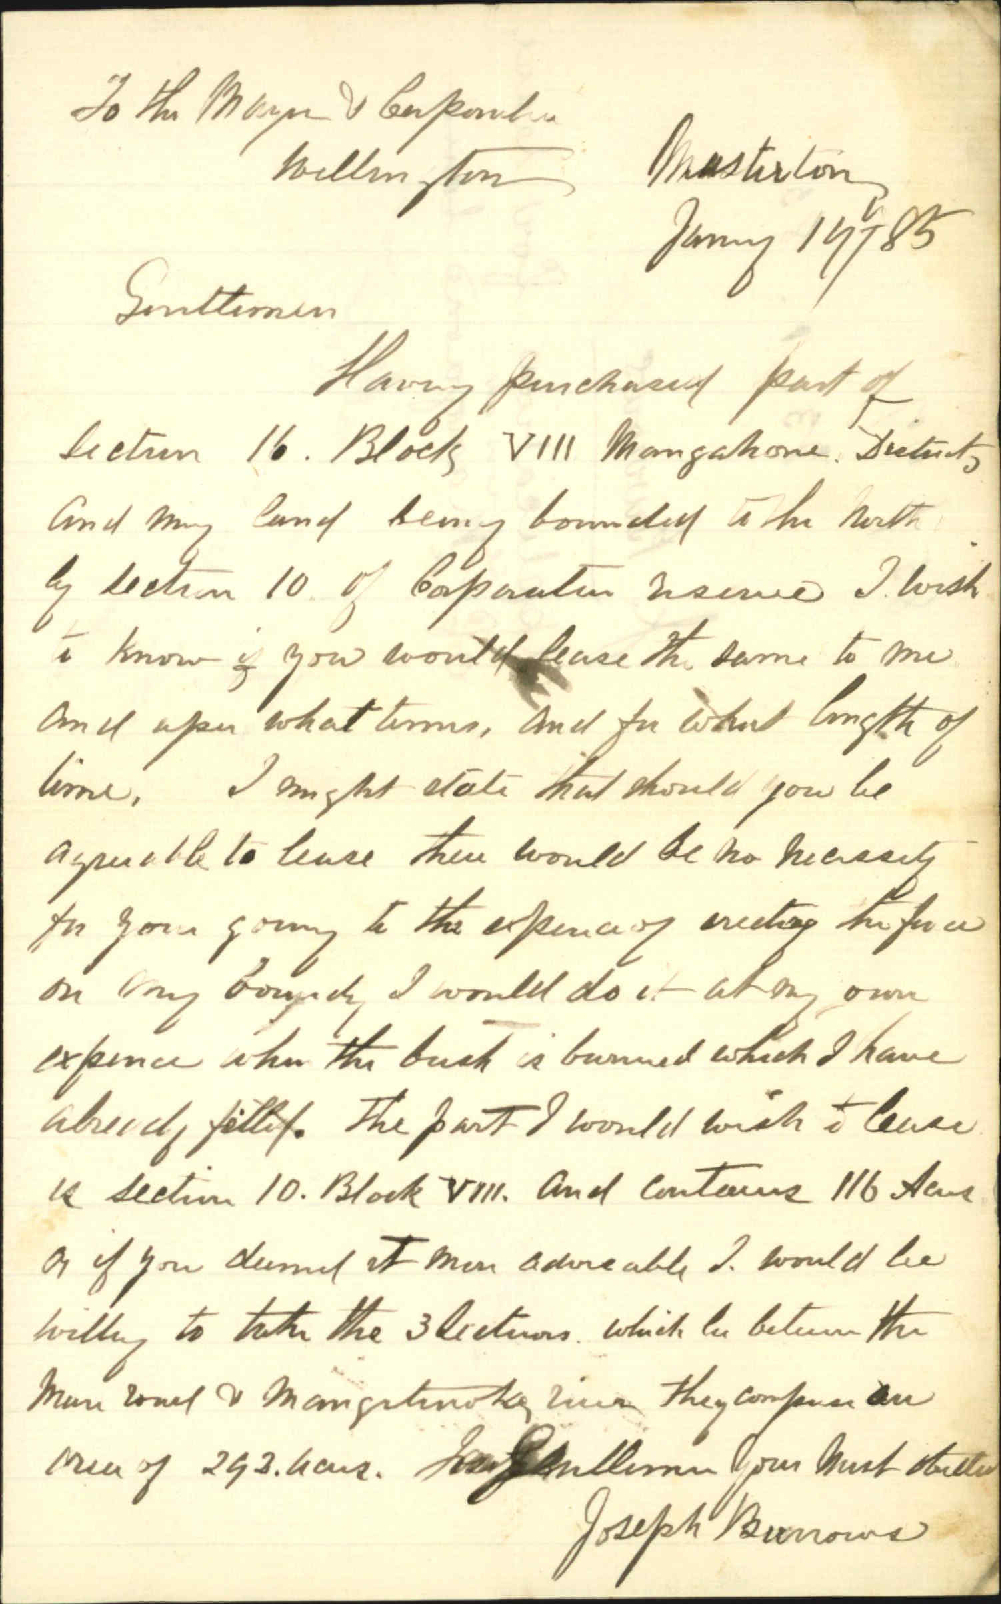 To the Mayor & Corporation
Wellington
Masterton
Janry 19/85
Gentlemen
Having purchased part of
Section 16. Block VIII Mangahone. District,
and my land being bounded to the North
by Section 10 of Corporation reserve I wish
to know if you would lease the same to me
and upon what terms, and for what length of
time. I might state that should you be
agreeable to lease there would be no necessity
for your going to the expence of erecting the fence
on my boundy I would do it at my own
expence when the bush is burned which I have
already felled. The part I would wish to lease
is section 10. Block VIII. and contains 116 Acres
or if you deemed it more adviseable I. would be
willing to take the 3 Sections. which lie between the
Main road & Mangatinoka river they comprise an
area of 293. acres. Gentlemen your Most
Joseph Burrows